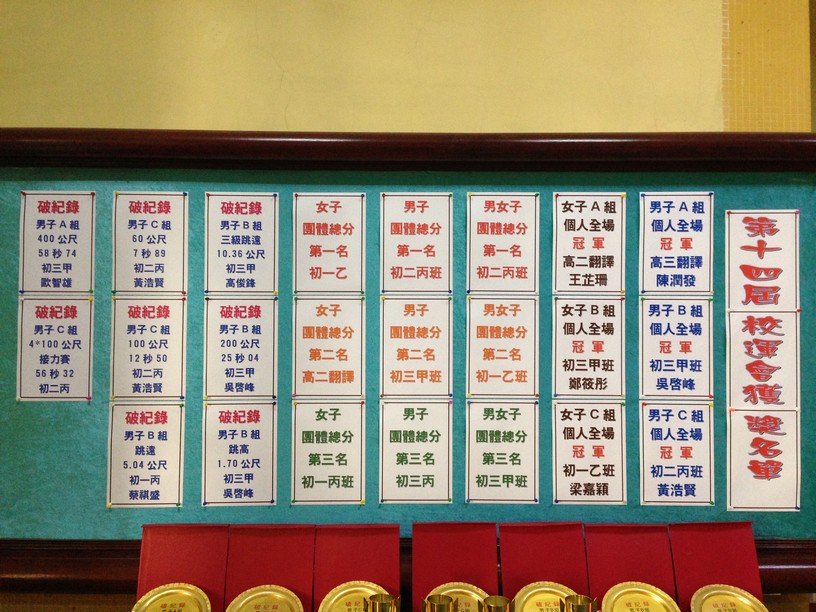 第十四屆
校運會獲
獎名單
男子A組
個人全場
冠軍
高三翻譯
陳潤發
男子B組
個人全場
冠軍
初三甲班
吳啓峰
男子C組
個人全場
冠軍
初二丙班
黃浩賢
女子A組
個人全場
冠軍
高二翻譯
王芷珊
女子B組
個人全場
冠軍
初三甲班
鄭筱彤
女子C組
個人全場
冠軍
初一乙班
梁嘉穎
男女子
團體總分
第一名
初二丙班
男女子
團體總分
第二名
初一乙班
男女子
團體總分
第三名
初三甲班
男子
團體總分
第一名
初二丙班
男子
團體總分
第二名
初三甲班
男子
團體總分
第三名
初三丙
女子
團體總分
第一名
初一乙
女子
團體總分
第二名
高二翻譯
女子
團體總分
第三名
初一丙班
破紀錄
男子B組
三級跳遠
10.36公尺
初三甲
高俊鋒
破紀錄
男子B組
200公尺
25秒04
初三甲
吳啓峰
破紀錄
男子B組
跳高
1.70公尺
初三甲
吳啓峰
破紀錄
男子C組
60公尺
7秒89
初二丙
黃浩賢
破紀錄
男子C組
100公尺
12秒50
初二丙
黃浩賢
破紀錄
男子B組
跳遠
5.04公尺
初一丙
蔡祺盛
破紀錄
男子A組
400公尺
58秒74
初三甲
歐智雄
破紀錄
男子C組
4*100公尺
接力賽
56秒32
初二丙
破紀録
破紀録
破紀録
破紀録
破紀録
破紀録
破紀録